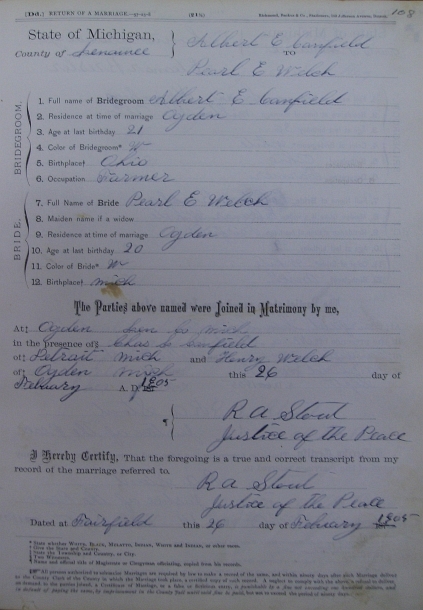 [Dd.] RETURN OF A MARRIAGE
168
State of Michigan,
County of Lenawee
Albert E Canfield
TO
Pearl E Welch
BRIDEGROOM.
1. Full name of Bridegroom Albert E Canfield
2. Residence at time of marriage Ogden
3. Age at last birthday 21
4. Color of Bridegroom* W
5. Birthplace† Ohio
6. Occupation Farmer
BRIDE.
7. Full Name of Bride Pearl E Welch
8. Maiden name if a widow
9. Residence at time of marriage Ogden
10. Age at last birthday 20
11. Color of Bride* W
12. Birthplace† Mich
The Parties above named were Joined in Matrimony by me,
At‡ Ogden Len Co Mich
in the presence of§ Chas Canfield
of‡ Detroit Mich and Henry Welch
of‡ Ogden Mich this 26 day of
February A. D. 1905
R A Stout
Justice of the Peace
I Hereby Certify, That the foregoing is a true and correct transcript from my
record of the marriage referred to.
R A Stout
Justice of the Peace
Dated at Fairfield this 26 day of February 1905
* State whether White, Black, Mulatto, Indian, White and Indian, or other races.
† Give the State and County.
‡ State the Township and County, or City.
§ Two Witnesses.